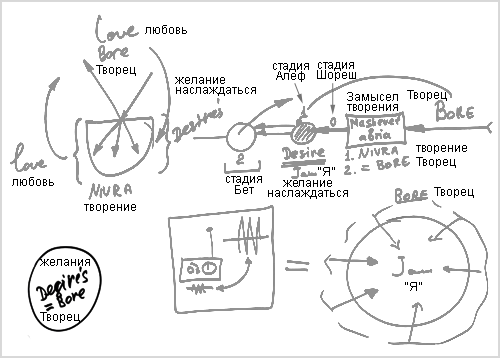 Love любовь
Bore
Творец
желание
наслаждаться
Desire's
Love
любовь
NIVRA
творение
стадия
Алеф
стадия
Шореш
1
0
Замысел
творения
Творец
BORE
1. NIVRA
2. = BORE
творение
Творец
2
стадия
Бет
Desire
I am "Я"
желание
наслаждаться
желания
Desire's
= Bore
Творец
=
BORE Творец
I am
"Я"